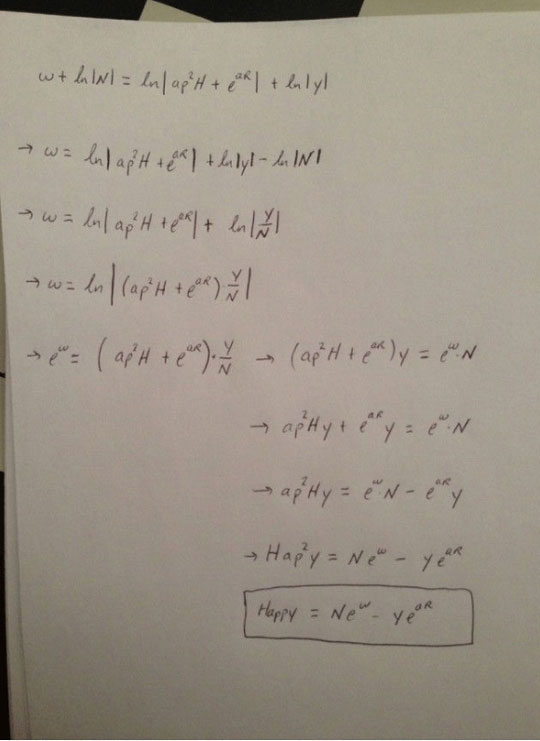 w + ln|N| = ln|ap²H + e^{aR}| + ln|y|
→ w = ln|ap²H + e^{aR}| + ln|y| - ln|N|
→ w = ln|ap²H + e^{aR}| + ln|Y/N|
→ w = ln|(ap²H + e^{aR}) Y/N|
→ e^w = (ap²H + e^{aR})·Y/N → (ap²H + e^{aR})y = e^w·N
→ ap²Hy + e^{aR}y = e^w·N
→ ap²Hy = e^w N - e^{aR}y
→ Hap²y = Ne^w - ye^{aR}
Happy = Ne^w - ye^{aR}